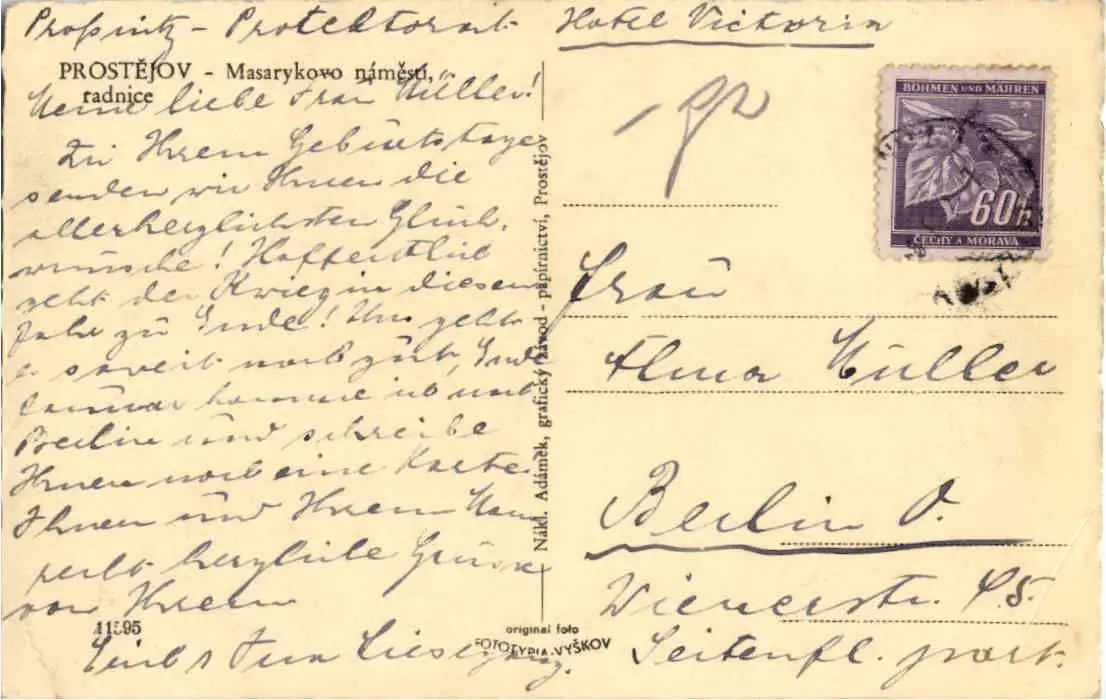 Proßnitz - Protektorat Hotel Victoria
PROSTĚJOV - Masarykovo náměstí,
radnice
Meine liebe Frau Müller!
Zu Ihrem Geburtstage
senden wir Ihnen die
allerherzlichsten Glück-
wünsche! Hoffentlich
geht der Krieg in diesem
Jahr zu Ende! Uns geht
e. soweit noch gut, Ende
Januar komme ich nach
Berlin und schreibe
Ihnen noch eine Karte.
Ihnen und Ihrem Mann
recht herzliche Grüsse
von Ihrem
11595
Nákl. Adámek, grafický závod - papírnictví, Prostějov
original foto
FOTOTYPIA-VYŠKOV
BÖHMEN UND MÄHREN
60h
ČECHY A MORAVA
Frau
Alma Müller
Berlin O.
Wienerstr. 45.
Seitenfl. part.